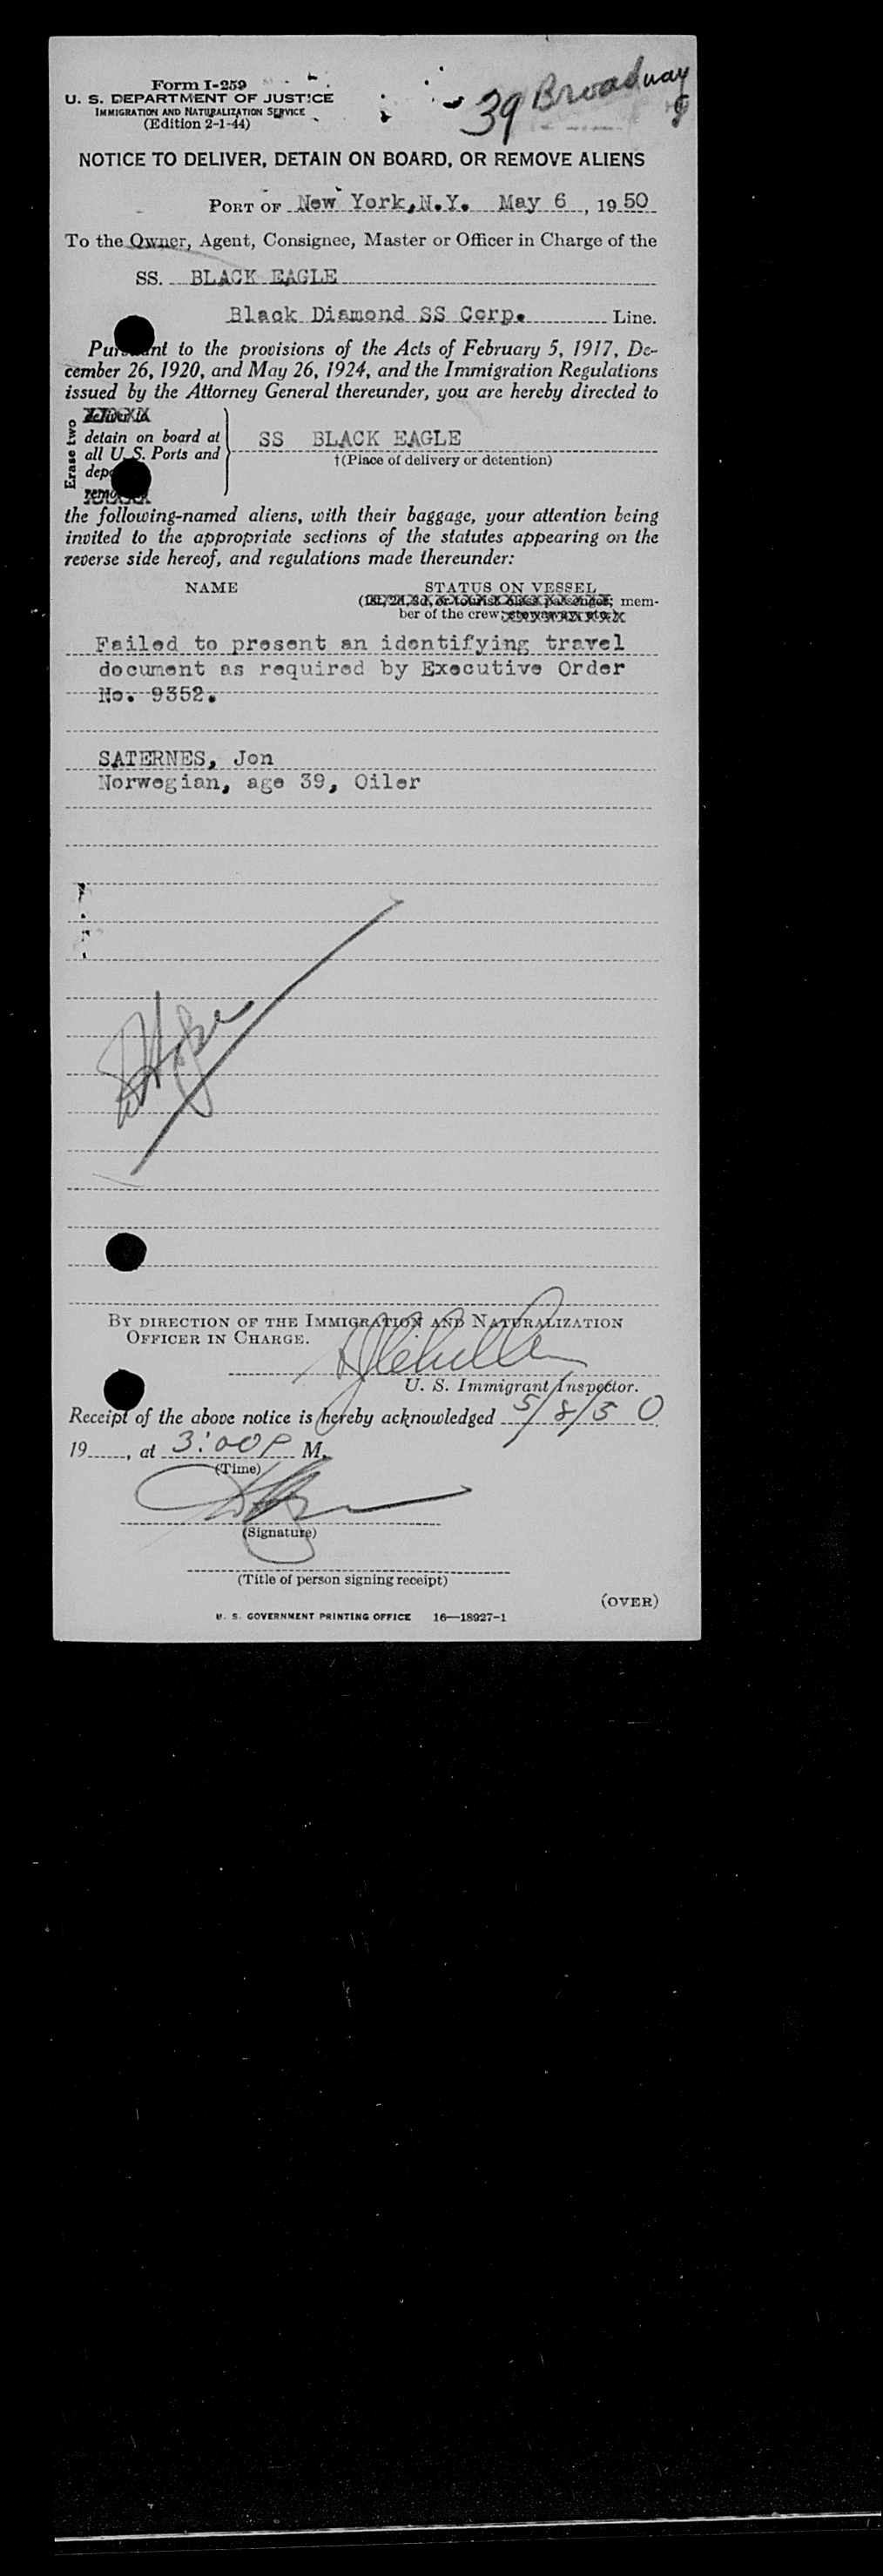 39 Broadway
Form I-259
U. S. DEPARTMENT OF JUSTICE
IMMIGRATION AND NATURALIZATION SERVICE
(Edition 2-1-44)
NOTICE TO DELIVER, DETAIN ON BOARD, OR REMOVE ALIENS
PORT OF New York, N.Y. May 6, 1950
To the Owner, Agent, Consignee, Master or Officer in Charge of the
SS. BLACK EAGLE
Black Diamond SS Corp. Line.
Pursuant to the provisions of the Acts of February 5, 1917, De-
cember 26, 1920, and May 26, 1924, and the Immigration Regulations
issued by the Attorney General thereunder, you are hereby directed to
Erase two
detain on board at
all U. S. Ports and
SS BLACK EAGLE
†(Place of delivery or detention)
the following-named aliens, with their baggage, your attention being
invited to the appropriate sections of the statutes appearing on the
reverse side hereof, and regulations made thereunder:
NAME STATUS ON VESSEL
mem-
ber of the crew;
Failed to present an identifying travel
document as required by Executive Order
No. 9352.
SATERNES, Jon
Norwegian, age 39, Oiler
BY DIRECTION OF THE IMMIGRATION AND NATURALIZATION
OFFICER IN CHARGE.
U. S. Immigrant Inspector.
Receipt of the above notice is hereby acknowledged 5/8/50
19, at 3:00 P M.
(Time)
(Signature)
(Title of person signing receipt)
(OVER)
U. S. GOVERNMENT PRINTING OFFICE 16—18927-1